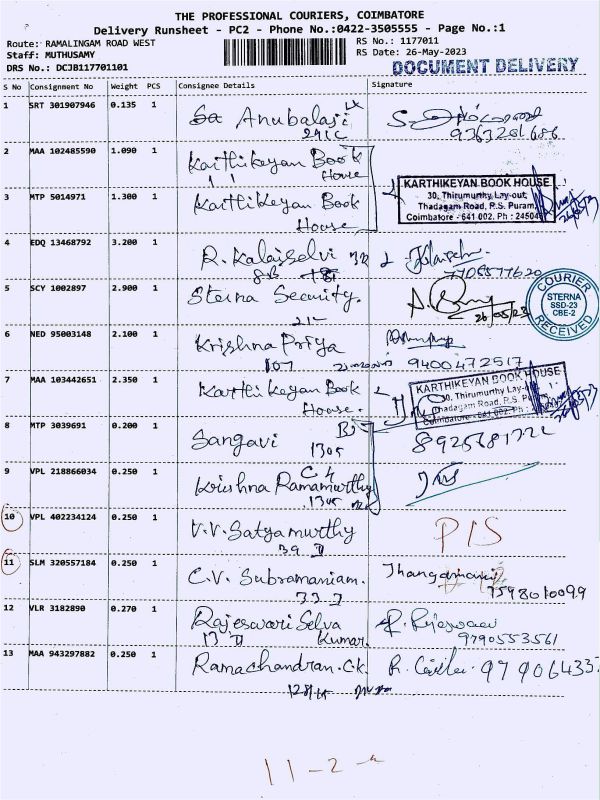 THE PROFESSIONAL COURIERS, COIMBATORE
Delivery Runsheet - PC2 - Phone No.:0422-3505555 - Page No.:1
Route: RAMALINGAM ROAD WEST
RS No.: 1177011
Staff: MUTHUSAMY
RS Date: 26-May-2023
DRS No.: DCJB117701101
DOCUMENT DELIVERY
S No Consignment No Weight PCS Consignee Details Signature
1 SRT 301907946 0.135 1 Anubalaji
9363201686
2 MAA 102485590 1.090 1 Karthikeyan Book
House
KARTHIKEYAN BOOK HOUSE
30, Thirumurthy Lay-out,
Thadagam Road, R.S. Puram,
Coimbatore - 641 002. Ph : 24504
3 MTP 5014971 1.300 1 Karthikeyan Book
House
4 EDQ 13468792 3.200 1 R. Kalaiselvi
5 SCY 1002897 2.900 1 Sterna Security.
26/05/23
COURIER
STERNA
SSD-23
CBE-2
RECEIVED
6 NED 95003148 2.100 1 Krishna Priya
107 9400472517
7 MAA 103442651 2.350 1 Karthikeyan Book
House.
KARTHIKEYAN BOOK HOUSE
30, Thirumurthy Lay-
Thadagam Road, R.S. Pu
Coimbatore - 641 002. Ph :
8 MTP 3039691 0.200 1 Sangavi B
1305
9 VPL 218866034 0.250 1 Krishna Ramamurthy
1305
10 VPL 402234124 0.250 1 V.V. Satyamurthy P/S
39 II
11 SLM 320557184 0.250 1 C.V. Subramaniam. Thangamani
33 I 7598010099
12 VLR 3182890 0.270 1 Rajeswari Selva R. Rajeswari
13 II Kumar. 9790553561
13 MAA 943297882 0.250 1 Ramachandran.C.K. 979064337
11-2-a